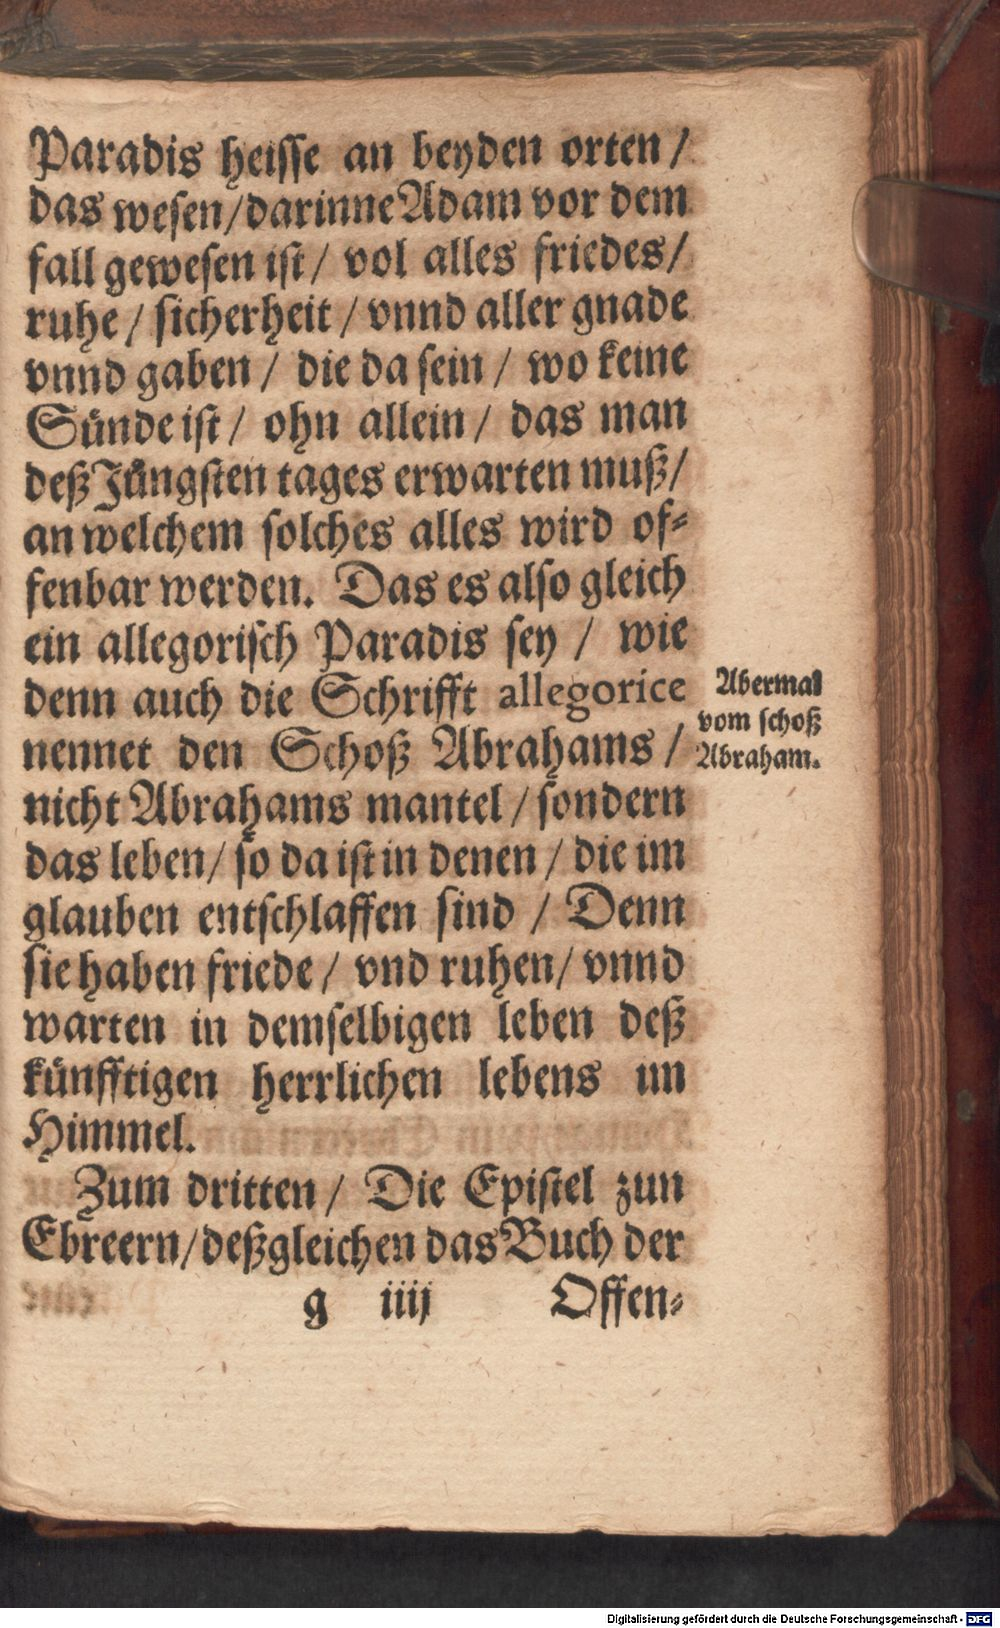 Paradis heisse an beyden orten /
das wesen / darinne Adam vor dem
fall gewesen ist / vol alles friedes /
ruhe / sicherheit / vnnd aller gnade
vnnd gaben / die da sein / wo keine
Sünde ist / ohn allein / das man
deß Jüngsten tages erwarten muß /
an welchem solches alles wird of-
fenbar werden. Das es also gleich
ein allegorisch Paradis sey / wie
denn auch die Schrifft allegorice
nennet den Schoß Abrahams /
nicht Abrahams mantel / sondern
das leben / so da ist in denen / die im
glauben entschlaffen sind / Denn
sie haben friede / vnd ruhen / vnnd
warten in demselbigen leben deß
künfftigen herrlichen lebens im
Himmel.
Zum dritten / Die Epistel zun
Ebreern / deßgleichen das Buch der
g iiij Offen-
Abermal
vom schoß
Abraham.
Digitalisierung gefördert durch die Deutsche Forschungsgemeinschaft - DFG